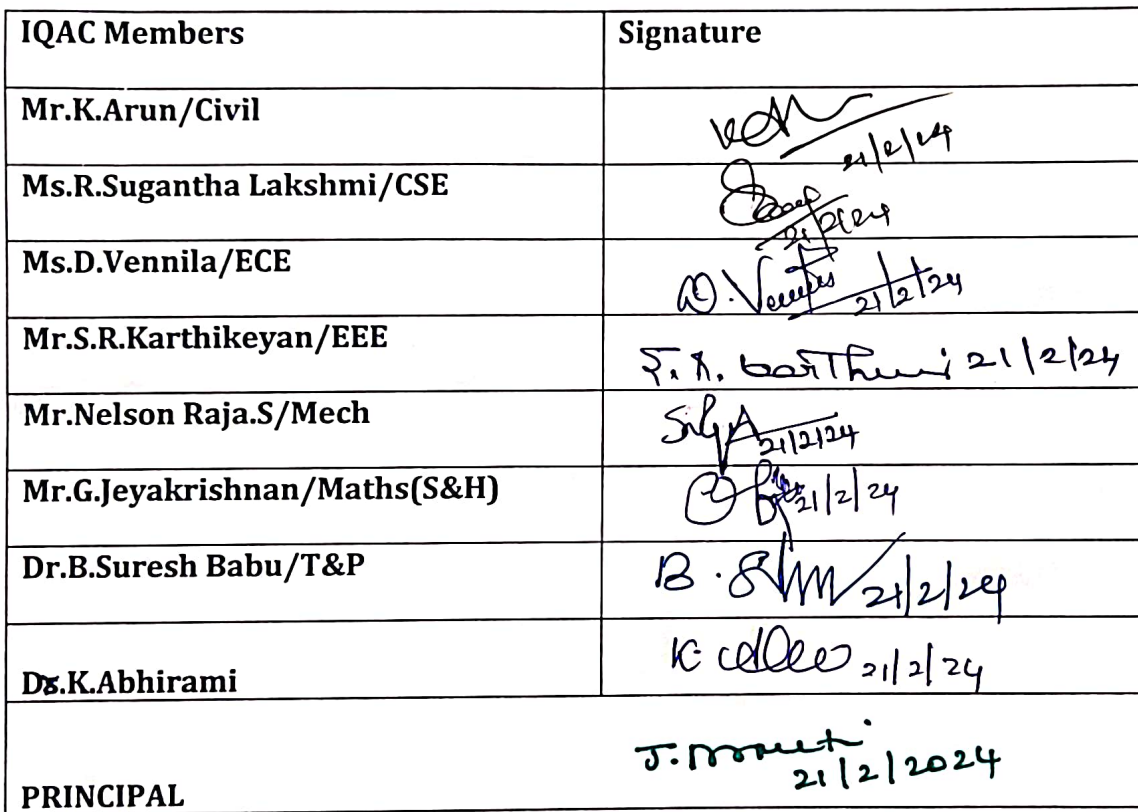 IQAC Members Signature
Mr.K.Arun/Civil
21/2/24
Ms.R.Sugantha Lakshmi/CSE
21/2/24
Ms.D.Vennila/ECE D. 21/2/24
Mr.S.R.Karthikeyan/EEE 21/2/24
Mr.Nelson Raja.S/Mech 21/2/24
Mr.G.Jeyakrishnan/Maths(S&H) 21/2/24
Dr.B.Suresh Babu/T&P B. 21/2/24
Dr.K.Abhirami K 21/2/24
PRINCIPAL J. 21/2/2024